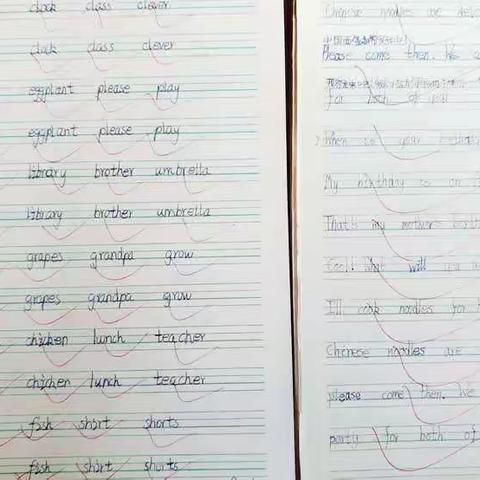 clock class clever
clock class clever
eggplant please play
eggplant please play
library brother umbrella
library brother umbrella
grapes grandpa grow
grapes grandpa grow
chicken lunch teacher
chicken lunch teacher
fish shirt shorts
fish shirt shorts
Chinese noodles are
Please come then. We
for both of you
When is your
My birthday is on
That's my mother's
Cool! What will you
I'll cook noodles for
Chinese noodles are
please come then. We
party for both of